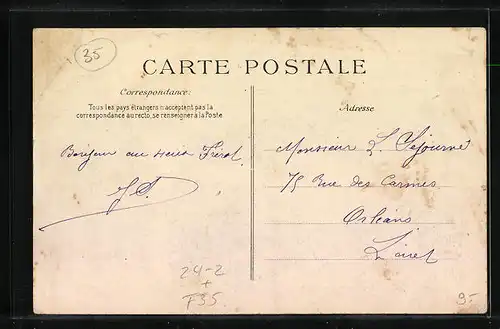 35
CARTE POSTALE
Correspondance:
Tous les pays étrangers n'acceptent pas la
correspondance au recto, se renseigner à la Poste
Adresse
Bonjour au
Monsieur L. Séjourné
75 Rue des Carmes
Orléans
Loiret
24-2
+
F35
9-